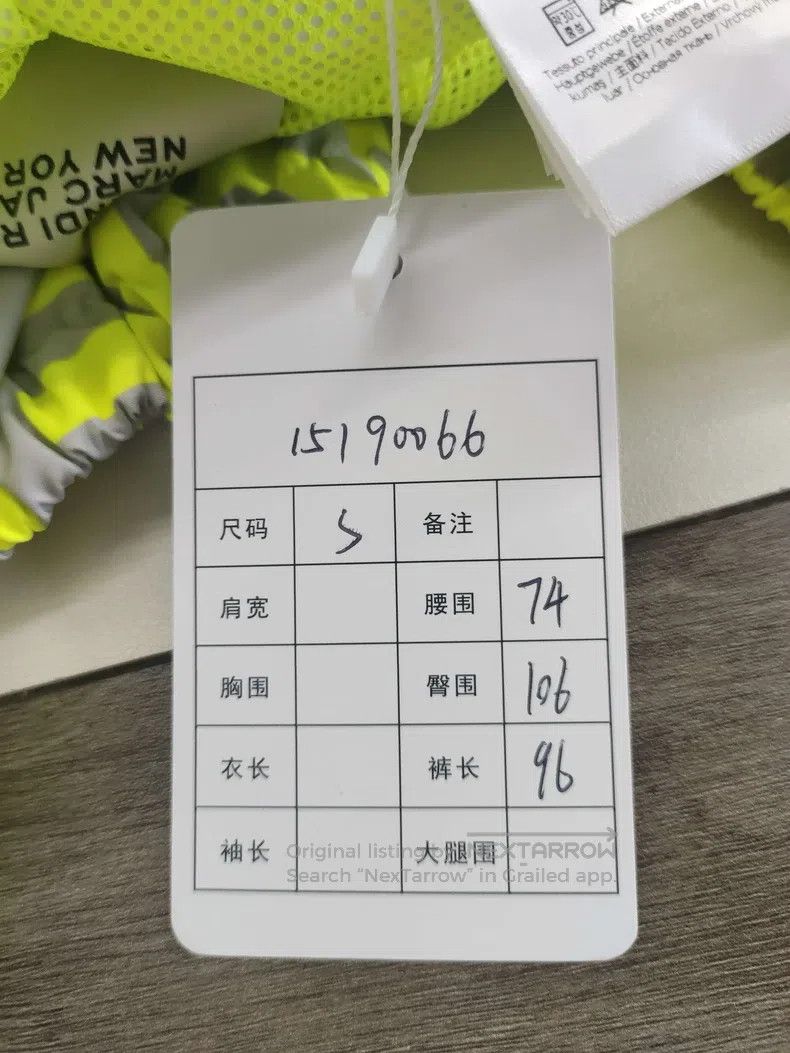 Tessuto principale / External
Hauptgewebe / Étoffe externe /
kumaş / 主面料 / Tecido Externo /
/ Основная ткань /
NEW YOR
MARC JA
NDI R
15190066
尺码 S 备注
肩宽 腰围 74
胸围 臀围 106
衣长 裤长 96
袖长 大腿围
Original listing on NEXTARROW
Search "NexTarrow" in Grailed app.